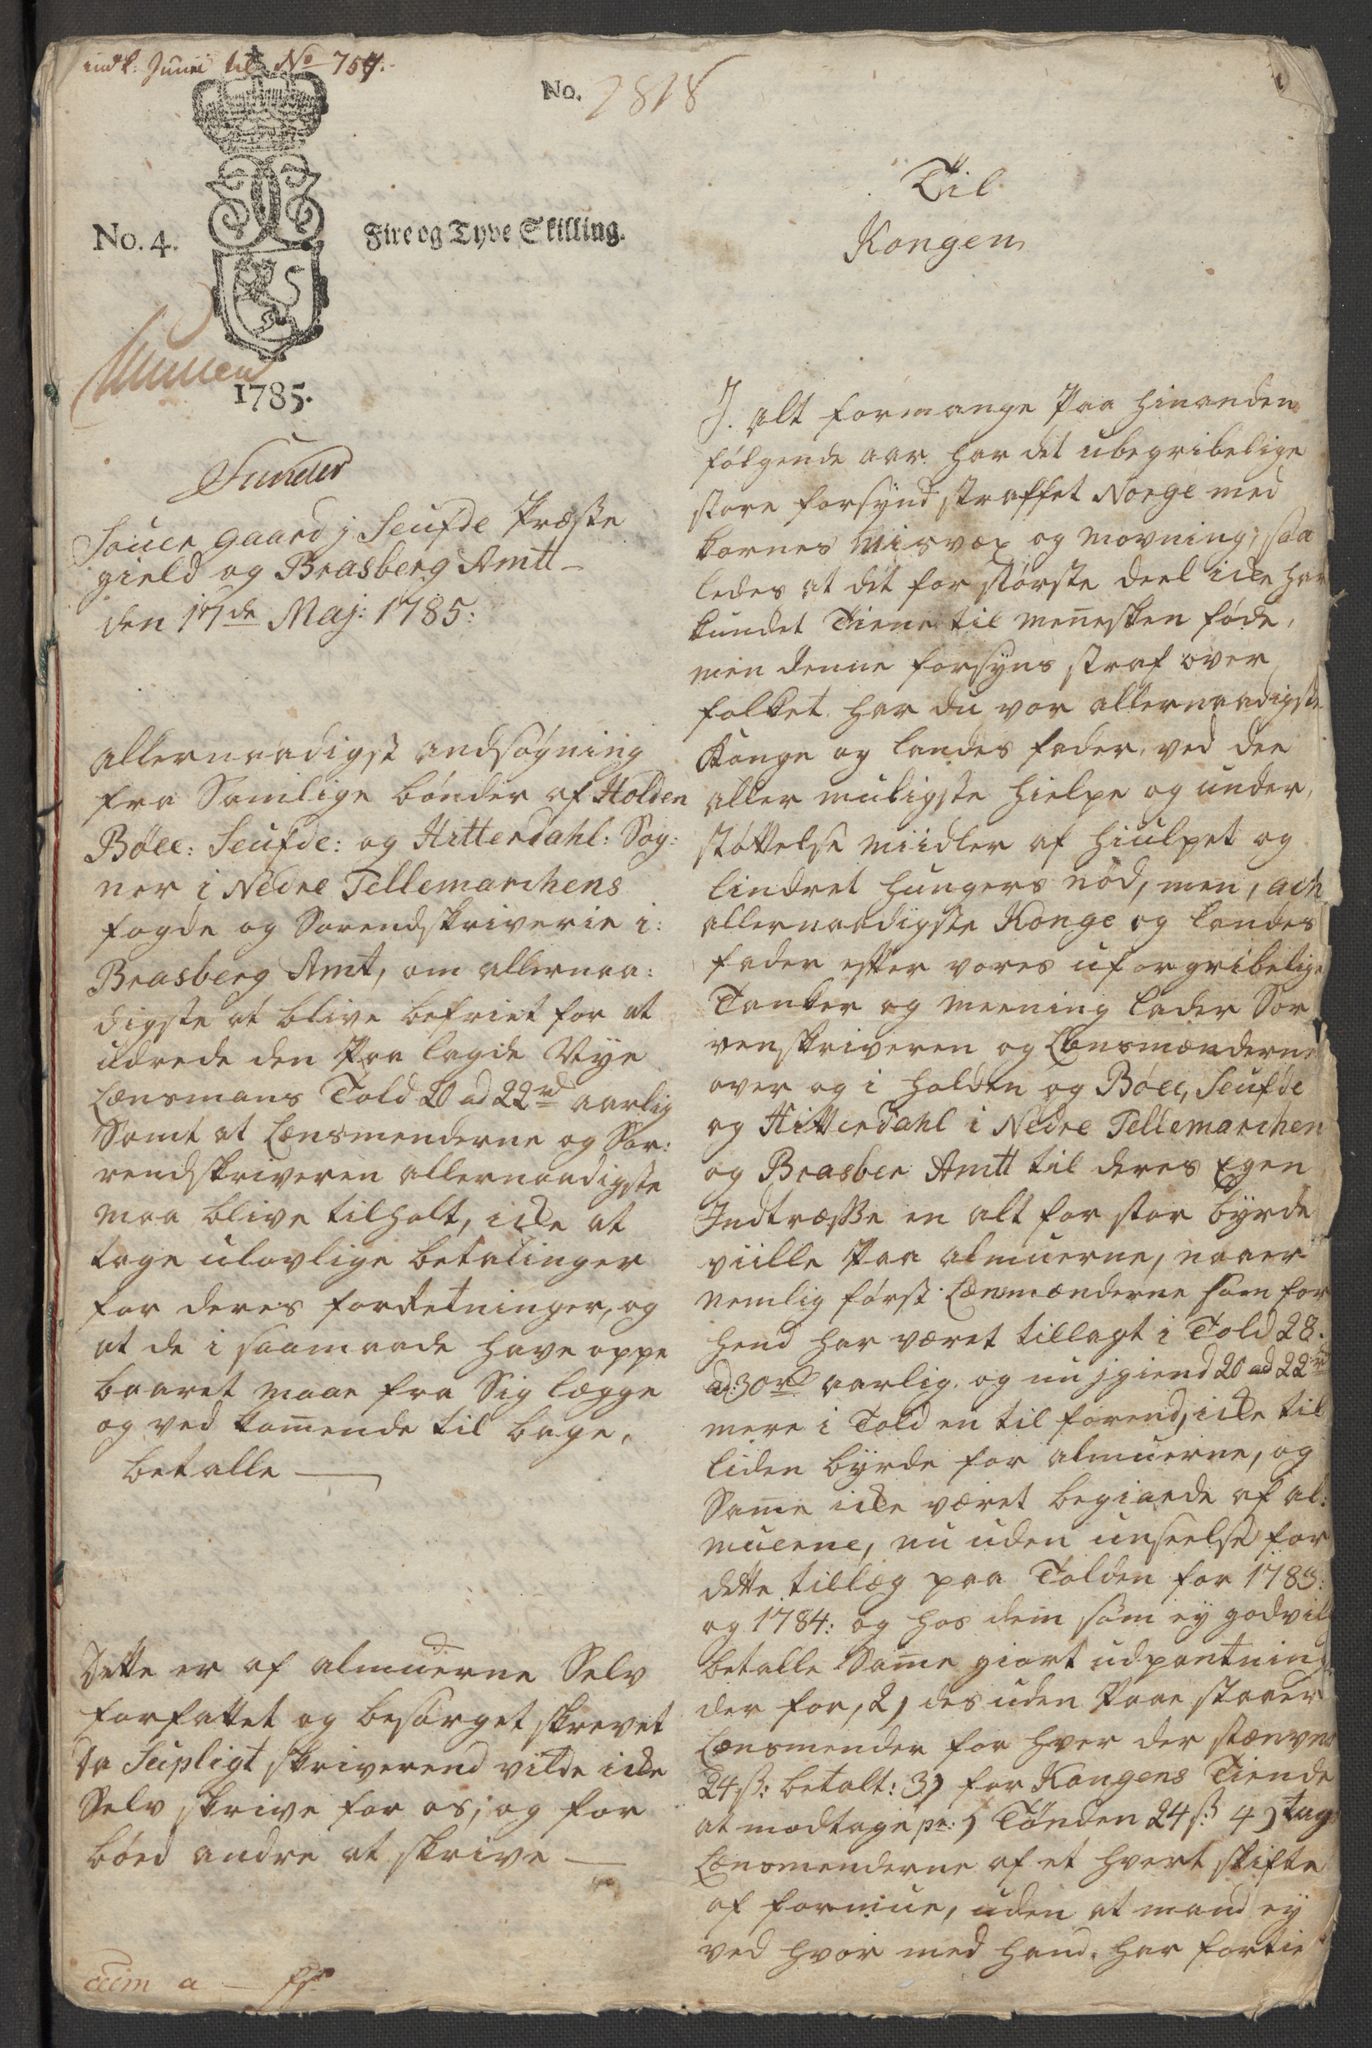 indk: Junii til No 757.
No. 2818
No. 4.
Fire og Tyve Skilling.
1785.
Souer gaard j Seufde Præste
gield og Brasberg Amtt
den 17de Maj: 1785:
allernaadigst andsøgning
fra Samlige bønder af Holden
Bøee: Seufde: og Hitterdahl: Sog:
ner i Nedre Tellemarchens
fogde og Sorendskriverie i:
Brasberg Amt, om allernaa:
digste at blive befriet for at
udrede den Paa lagde Nye
Lænsmans Told 20 ad 22rd aarlig
Samt at Lænsmenderne og Sor:
rendskriveren allernaadigste
maa blive tilholt, icke at
tage ulovlige betalinger
for deres forretninger, og
at de i saamaade have oppe
baaret maae fra Sig lægge
og ved komende til bage,
betalle
Dette er af almuerne Selv
forfattet og besørget skrevet
da Seupligt skriverend vilde icke
Selv skrive for os; og for
bøed andre at skrive
Til
Kongen
J. alt formange Paa hinanden
følgende aar har det ubegribelige
store forsynd straffet Norge med
kornes Misvæx og movning; saa
ledes at dét for største deel icke har
kundet Tiene til meneskens føde,
men denne forsyns straf over
folket har du vor allernaadigste
Konge og landes fader, ved dee
aller muligste hielpe og under,
støttelse miidler af hiulpet og
lindret hungers nød, men, ach
allernaadigste Konge og landes
fader efter vores uforgribelige
Tanker og meening lader Sor
renskriveren og Lænsmænderne
over og i holden og Bøee, Seufde
og Hitterdahl i Nedre Tellemarchen
og Brasber Amtt til deres Egen
Indtræsse en alt for stor byrde
viille Paa almuerne, naaer
nemlig først Lænmænderne som for
hend har været tillagt i Told 28.
ad: 30rd aarlig, og nu jgiend 20 ad 22rd
mere i Told en til forend, icke til
liden byrde for almuerne, og
Same icke været begiærede af al:
muerne, nu uden unseelse for
dette tillæg paa Tolden for 1783:
og 1784: og hos dem som ey godvil
betalle Same giort udpantning
der for, 2) des uden Paae staaer
Lænsmender for hver der stænvnes
24ß: betalt: 3) for Kongens Tiende
at modtage pr: 1 Tønden 24ß 4) tage
Lænsmenderne af et hvert skifte
af formue, uden at mand ey
ved hvor med hand har fortie